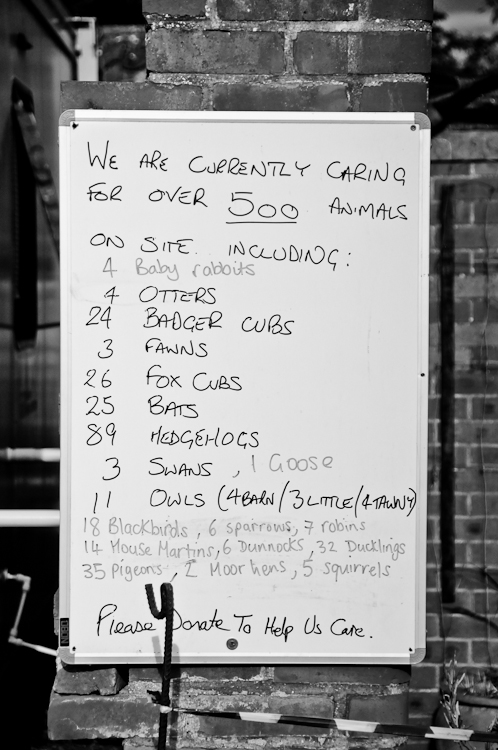 WE ARE CURRENTLY CARING
FOR OVER 500 ANIMALS
ON SITE. INCLUDING:
4 Baby rabbits
4 OTTERS
24 BADGER CUBS
3 FAWNS
26 FOX CUBS
25 BATS
89 HEDGEHOGS
3 SWANS, 1 Goose
11 OWLS (4 BARN/3 LITTLE/4 TAWNY)
18 Blackbirds, 6 sparrows, 7 robins
14 House Martins, 6 Dunnocks, 32 Ducklings
35 Pigeons, 2 Moor hens, 5 squirrels
Please Donate To Help Us Care.